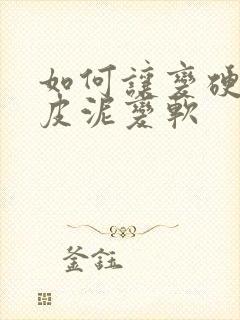 如何讓變硬
皮泥變軟
釜鈺